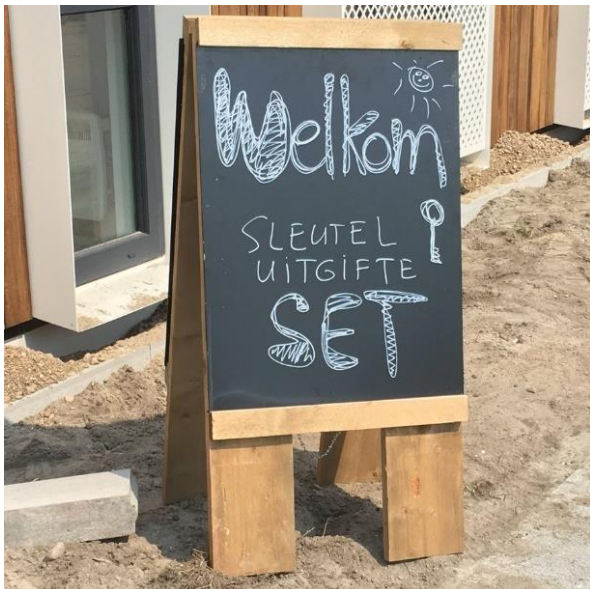 Welkom
SLEUTEL
UiTGiFTE
SET